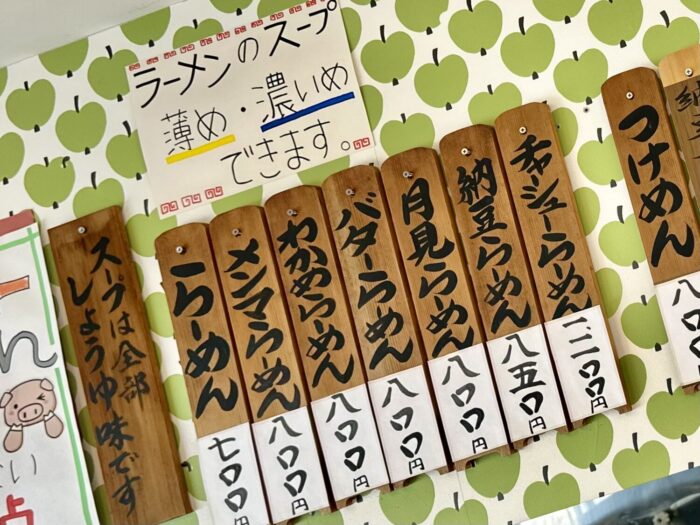 ラーメンのスープ
薄め・濃いめ
できます。
スープは全部
しょうゆ味です
らーめん
七〇〇円
メンマらーめん
八〇〇円
わかめらーめん
八〇〇円
バターらーめん
八〇〇円
月見らーめん
八〇〇円
納豆らーめん
八五〇円
チャーシューらーめん
一、二〇〇円
つけめん
八〇〇
納
ん
い